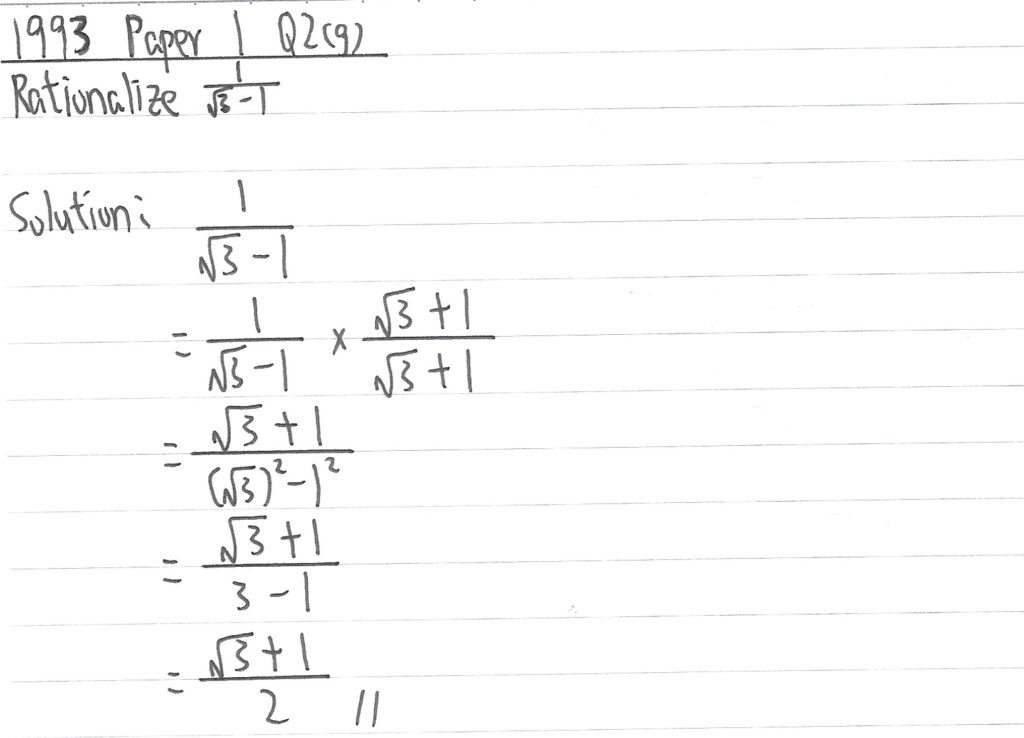 1993 Paper 1 Q2(g)
Rationalize 1/(√3 - 1)
Solution: 1/(√3 - 1)
= 1/(√3 - 1) × (√3 + 1)/(√3 + 1)
= (√3 + 1)/((√3)² - 1²)
= (√3 + 1)/(3 - 1)
= (√3 + 1)/2 //